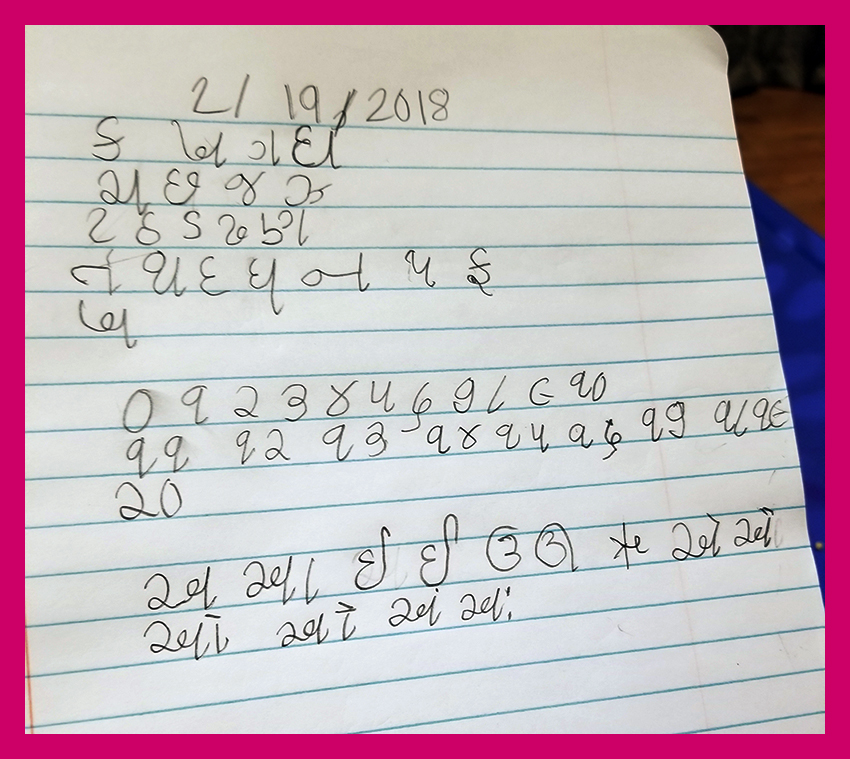 2/ 19/2018
ક ખ ગ ઘ
ચ છ જ ઝ
ટ ઠ ડ ઢ ણ
ત થ દ ધ ન પ ફ
બ
૦ ૧ ૨ ૩ ૪ ૫ ૬ ૭ ૮ ૯ ૧૦
૧૧ ૧૨ ૧૩ ૧૪ ૧૫ ૧૬ ૧૭ ૧૮ ૧૯
૨૦
અ આ ઇ ઈ ઉ ઊ ઋ એ ઐ
ઓ ઔ અં અઃ